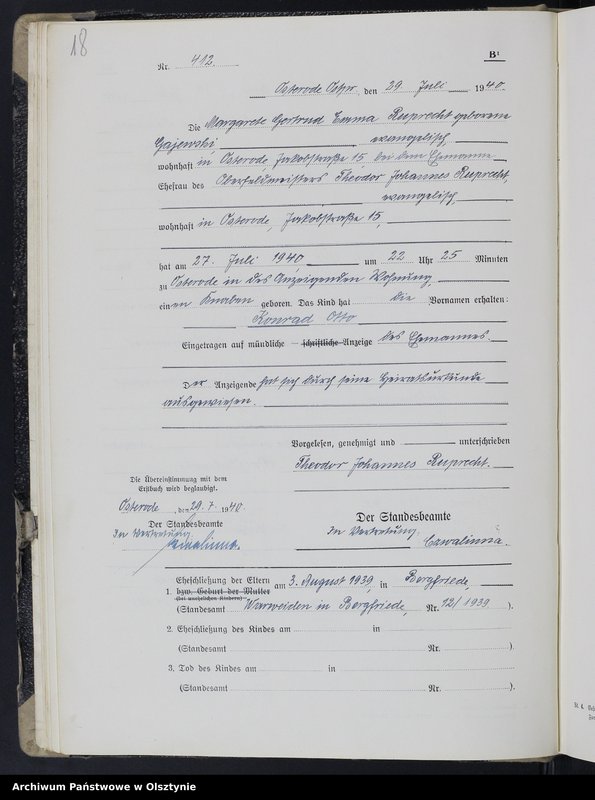 18
Nr. 412.
B¹
Osterode Ostpr. den 29. Juli 1940.
Die Margarete Gertrud Emma Ruprecht geborene
Gajewski, evangelisch,
wohnhaft in Osterode, Jakobstraße 15 bei dem Ehemanne
Ehefrau des Oberfeldmeisters Theodor Johannes Ruprecht,
evangelisch,
wohnhaft in Osterode, Jakobstraße 15,
hat am 27. Juli 1940 um 22 Uhr 25 Minuten
zu Osterode in des Anzeigenden Wohnung,
einen Knaben geboren. Das Kind hat die Vornamen erhalten:
Konrad Otto
Eingetragen auf mündliche – schriftliche Anzeige des Ehemannes.
Der Anzeigende hat sich durch seine Heiratsurkunde
ausgewiesen.
Vorgelesen, genehmigt und unterschrieben
Theodor Johannes Ruprecht.
Die Übereinstimmung mit dem
Erstbuch wird beglaubigt.
Osterode, den 29. 7. 1940.
Der Standesbeamte
In Vertretung
Czwalinna.
Der Standesbeamte
In Vertretung.
Czwalinna.
Eheschließung der Eltern am 3. August 1939, in Bergfriede,
1. bzw. Geburt der Mutter
(bei unehelichen Kindern)
(Standesamt Warweiden in Bergfriede, Nr. 12/1939 ).
2. Eheschließung des Kindes am in
(Standesamt Nr. ).
3. Tod des Kindes am in
(Standesamt Nr. ).
Archiwum Państwowe w Olsztynie